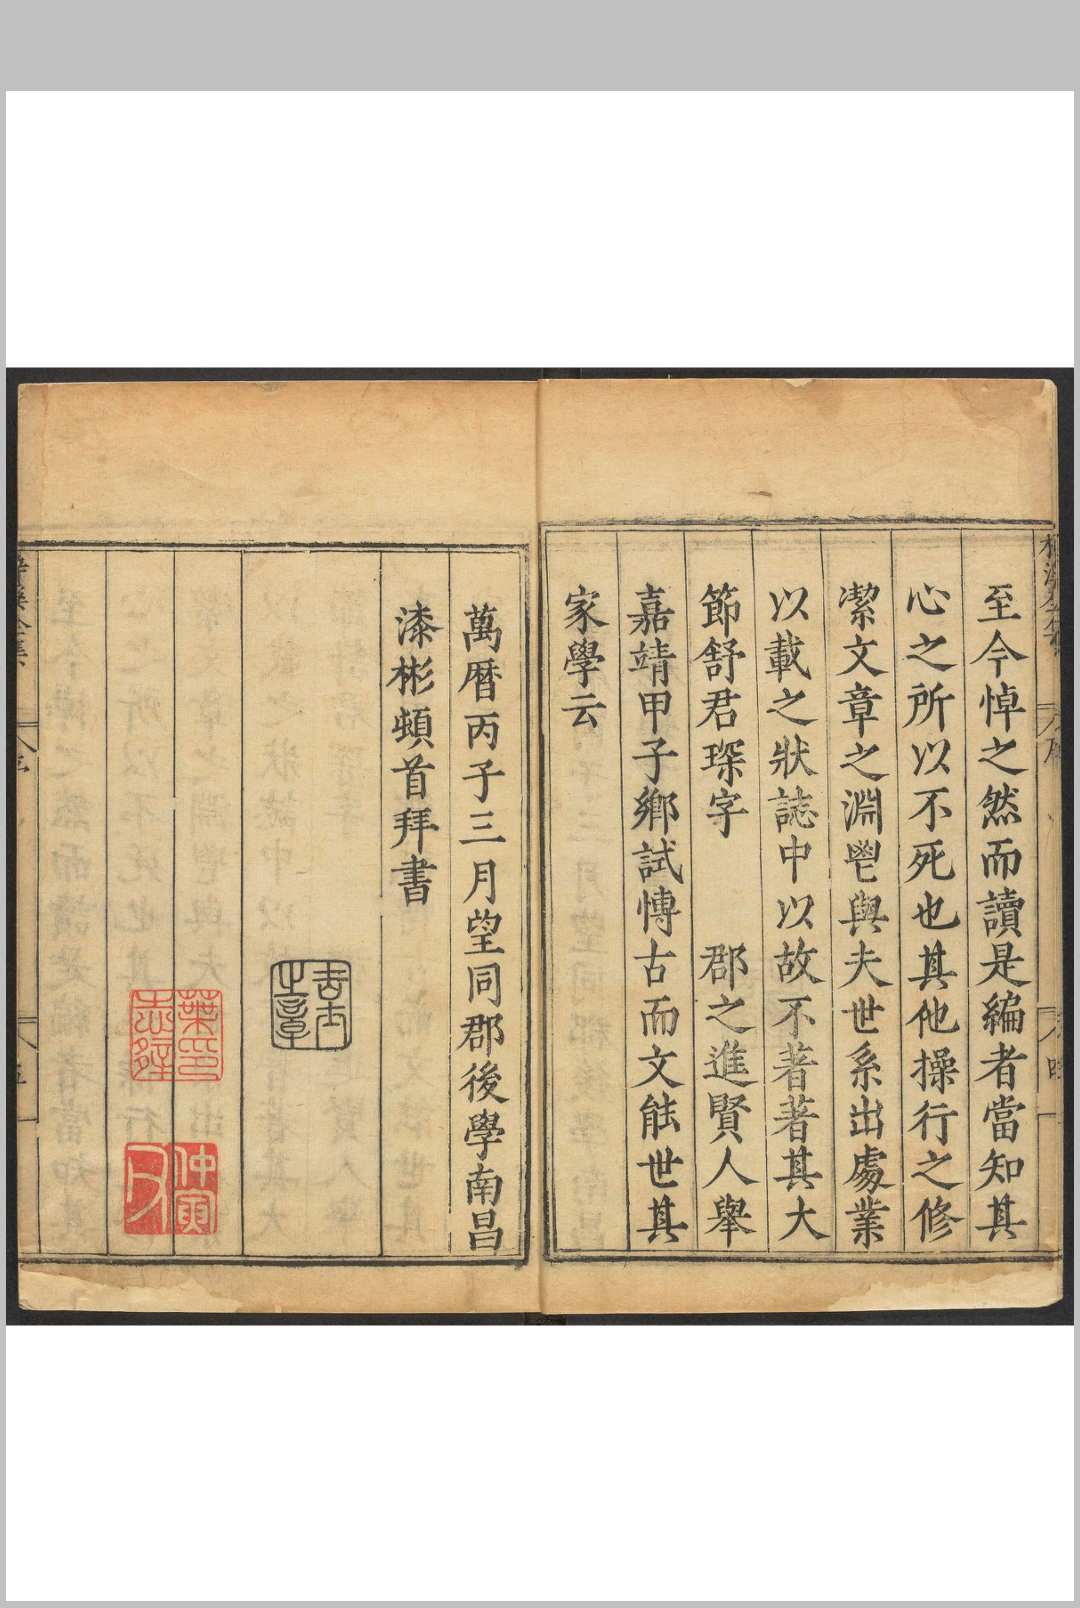 至今悼之然而讀是編者當知其
心之所以不死也其他操行之修
潔文章之淵鬯與夫世系出處業
以載之狀誌中以故不著著其大
節舒君琛字 郡之進賢人舉
嘉靖甲子鄉試愽古而文能世其
家學云
萬曆丙子三月望同郡後學南昌
漆彬頓首拜書
之章
葉印
仲寅